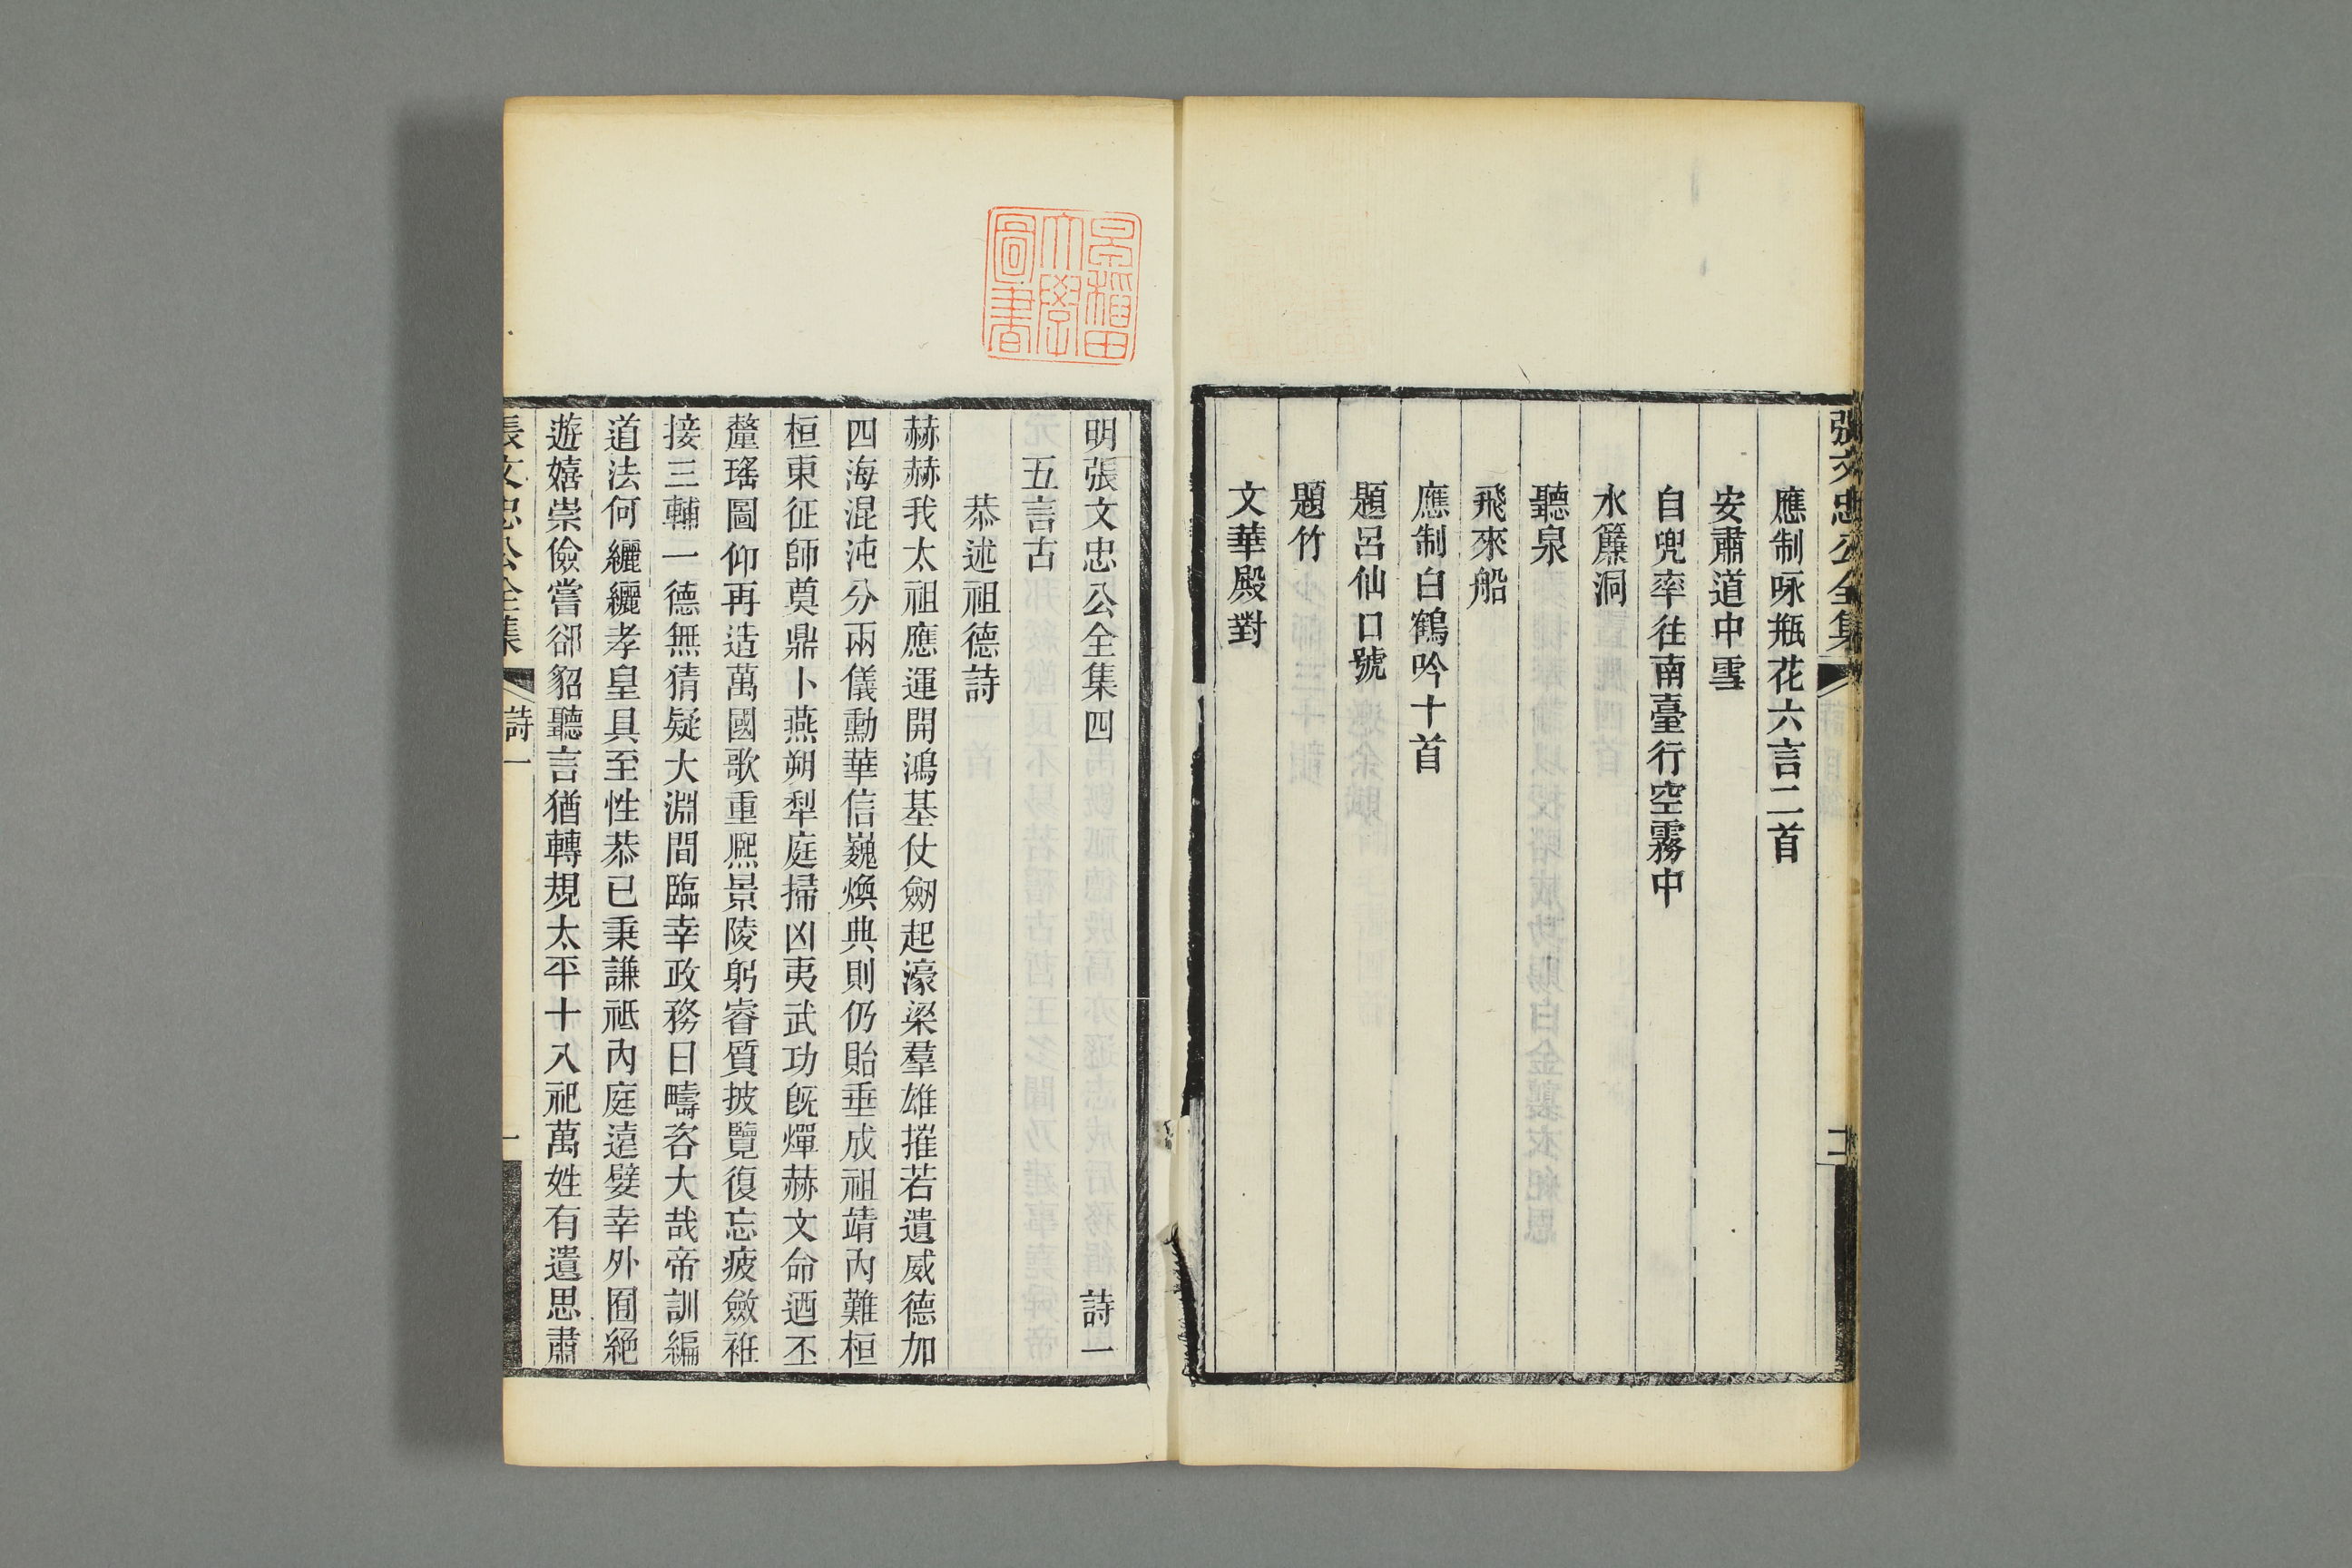 張文忠公全集
二
應制咏瓶花六言二首
安肅道中雪
自兜率往南臺行空霧中
水簾洞
聽泉
飛來船
應制白鶴吟十首
題呂仙口號
題竹
文華殿對
早稻田
大學
圖書
明張文忠公全集四 詩一
五言古
恭述祖德詩
赫赫我太祖應運開鴻基仗劒起濠梁羣雄摧若遺威德加
四海混沌分兩儀勳華信巍煥典則仍貽垂成祖靖內難桓
桓東征師奠鼎卜燕朔犁庭掃凶夷武功旣燀赫文命迺丕
釐瑤圖仰再造萬國歌重熈景陵躬睿質披覽復忘疲斂袵
接三輔一德無猜疑大淵間臨幸政務日疇咨大哉帝訓編
道法何纚纚孝皇具至性恭已秉謙祗內庭遠嬖幸外囿絕
遊嬉崇儉嘗卻貂聽言猶轉規太平十八祀萬姓有遺思肅
張文忠公全集 詩一 一